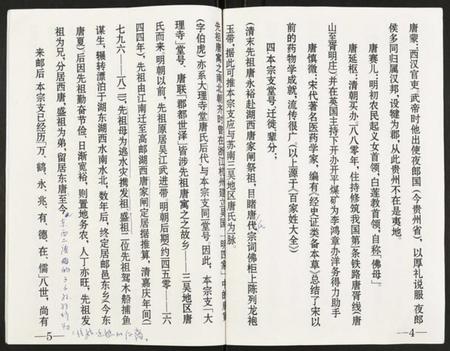 唐蒙:西汉官吏,武帝时他出使夜郎国(今贵州省),以厚礼说服 夜郎
侯多同归属汉邦,设犍为郡,从此贵州不在是夷地。
唐赛儿:明初农民起义女首领,白莲教首领,自称"佛母"。
唐廷枢:清朝买办一八八零年,住持修筑我国第一条铁路唐胥线(唐
山至胥明庄)并在英国主持下开办开平煤矿为李鸿章办洋务得力助手
唐慎微:宋代著名医药学家,编有《经史证类备本草》总结了宋以
前的药物学成就,流传很广(以上源于《百家姓大全》
四 本宗支堂号,迁徙,辈分;
—4—
(清末先祖唐永裕赴湖西唐家闸祭祖,目睹唐代宗词佛柜上陈列龙袍
玉带,据此可推本宗支应与苏南三吴地区唐氏为脉
(字伯虎)亦系大理寺堂唐氏后代)与本宗支同堂号,因此,本宗支「大
理寺」堂号,唐联「郡都世泽」皆涉先祖唐寓之之故乡——三吴地区唐
氏而来 明朝以前,先祖原居吴江武进带 明朝后期(约四五零——一六
四四年),先祖由江南迁至高邮湖西唐家闸定居据推算,清嘉庆年间(一
七九六——一八二一),先祖母为逃水灾携发祖,盛祖二位先祖驾木船捕鱼
谋生,辗转漂泊于湖东湖西水南水北,数年后,终定居邮邑东乡(今东
唐夏)后因先祖勤奋节俭,日渐宽裕,则置地务农,人丁亦旺,先祖发
祖为兄,分居西唐,盛祖为弟,留居东唐至今
来邮后 本宗支已经历万,鹤,永,兆,有,德,在,儒八世,尚有
—5—